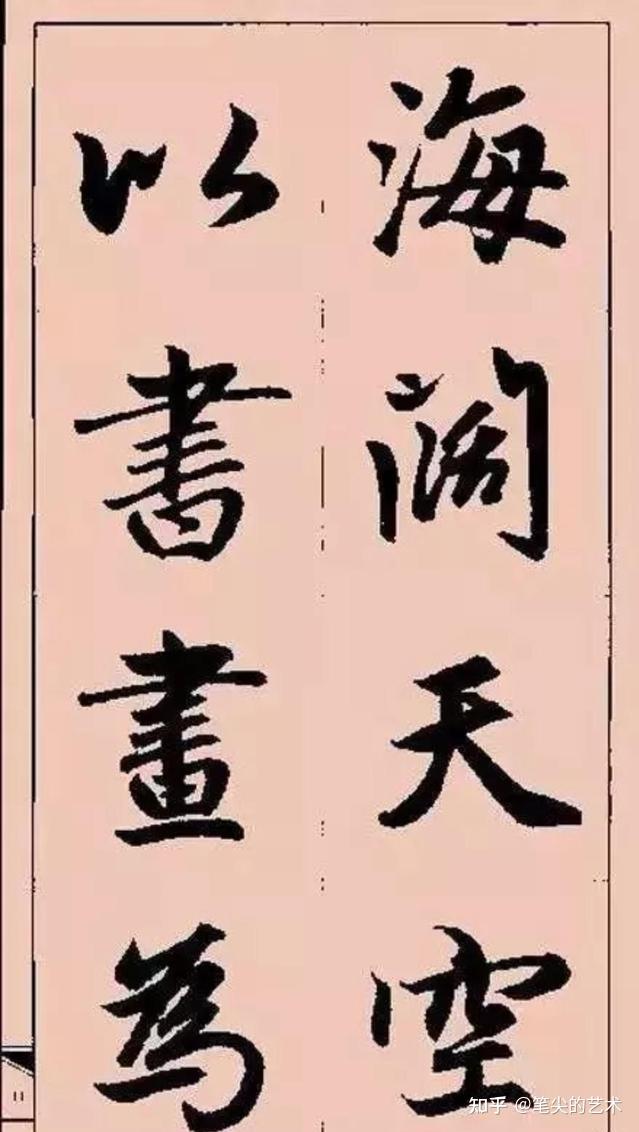 海闊天空
以書畫為
11
知乎 @笔尖的艺术